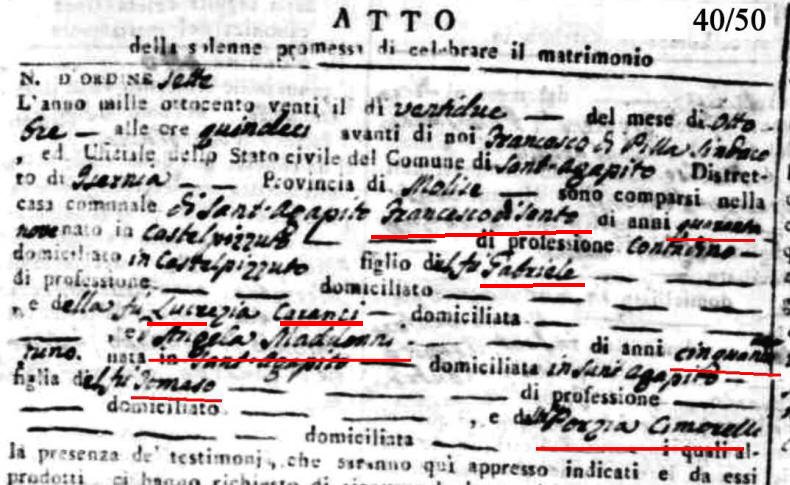 40/50
ATTO
della solenne promessa di celebrare il matrimonio
N. D'ORDINE Sette
L'anno mille ottocento venti il di ventidue — del mese di Otto
bre — alle ore quindeci avanti di noi Francesco di Pilla Sindaco
, ed Uficiale dello Stato civile del Comune di Sant-Agapito Distret-
to di Isernia — — Provincia di Molise — sono comparsi nella
casa comunale di Sant-Agapito Francesco di Santo di anni quaranta
nove nato in Castelpizzuto — — di professione Contadino —
domiciliato in Castelpizzuto figlio del fù Gabriele — —
di professione — — domiciliato — — —
, e della fù Lucrezia Caranci — domiciliata — —
— , e Angela Maddonni — di anni cinquanta
nata in Sant-Agapito — domiciliata in Sant Agapito —
figlia del fù Tomaso — — di professione — —
— domiciliato — — , e della Porzia Cimorelli
— — domiciliata — — i quali al-
la presenza de' testimonj, che saranno qui appresso indicati e da essi
prodotti, ci hanno richiesto di